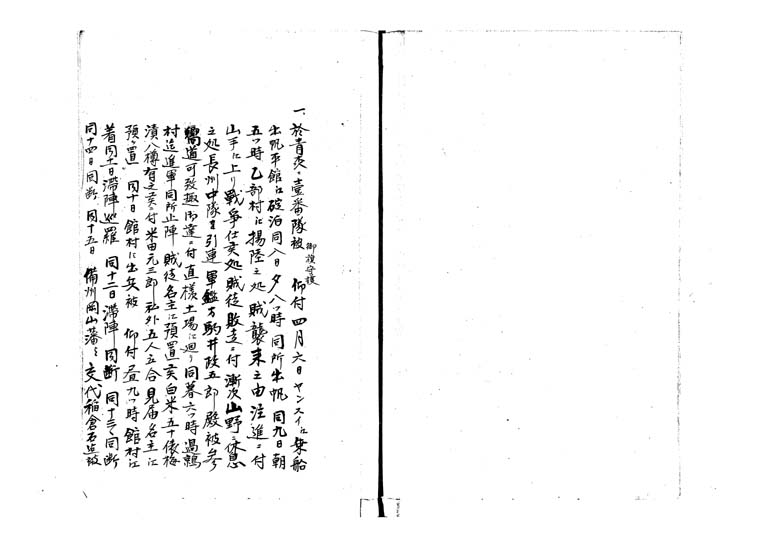 一、於青森壹番隊被 仰付四月六日ヤンスイ江乗船
御横守護
出帆平館江碇泊同八日夕八ツ時同所出帆同九日朝
五ツ時乙部村江揚陸之処賊襲来之由注進ニ付
山手に上り戦争仕候処賊徒敗走ニ付漸次山野ニ休息
之処長州中隊を引連軍鑑方駒井政五郎殿被参
嚮道可致趣御達ニ付直様土場江廻り同暮六ツ時過鶉
村迄進軍同所止陣賊徒名主江預置候白米五十俵梅
漬八樽有之候ニ付米田元三郎私外五人立合見届名主江
預ヶ置 同十日館村江出兵被 仰付昼九ツ時館村江
着同十一日滞陣巡羅 同十二日滞陣同断 同十三日同断
同十四日同断 同十五日 備州岡山藩与交代稲倉石出張